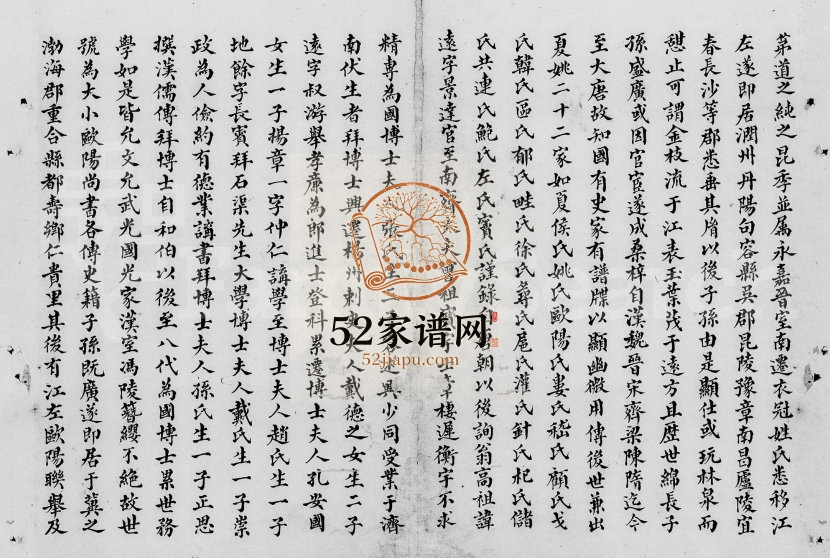 第道之純之昆季並属永嘉晉室南遷衣冠姓氏悉移江
左遂即居潤州丹陽句容縣吴郡昆陵豫章南昌廬陵宜
春長沙等郡悉垂其㣧以後子孫由是顯仕或玩林泉而
憇止可謂金枝流于江表玉葉茂于遠方且歷世綿長子
孫盛廣或因官宦遂成桑梓自漢魏晉宋齊梁陳隋迄今
至大唐故知國有史家有譜牒以顯幽微用傳後世兼出
夏姚二十二家如夏侯氏姚氏歐陽氏婁氏嵇氏顧氏戈
氏韓氏區氏郁氏畦氏徐氏尋氏扈氏灌氏針氏杞氏儲
氏共連氏鮑氏左氏賓氏謹錄朝以後詢翁高祖諱
遠字景達官至南齊大祖棲遲衡宇不求
精專為國博士夫二子具少同受業于濟
南伏生者拜博士興遷楊州刺史夫人戴德之女生二子
遠字叔游舉孝廉為郎進士登科累遷博士夫人孔安國
女生一子楊章一字仲仁講學至博士夫人趙氏生一子
地餘字長賓拜石渠先生大學博士夫人戴氏生一子崇
政為人儉約有德業講書拜博士夫人孫氏生一子正思
撰漢儒傳拜博士自和伯以後至八代為國博士累世務
學如是皆允文允武光國光家漢室馮陵簪纓不絶故世
號為大小歐陽尚書各傳史籍子孫既廣遂即居于冀之
渤海郡重合縣都壽鄉仁貴里其後有江左歐陽聯舉及
52家谱网
52jiapu.com